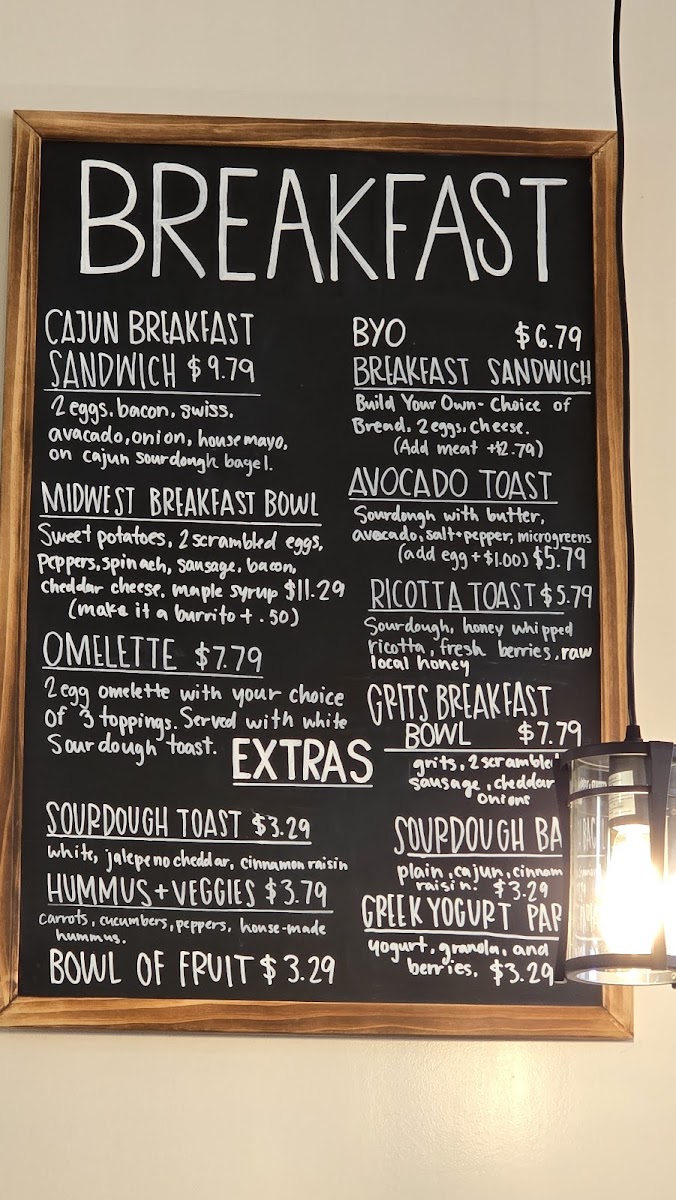 BREAKFAST
CAJUN BREAKFAST
SANDWICH $9.79
2 eggs, bacon, swiss,
avacado, onion, house mayo,
on cajun sourdough bagel.
MIDWEST BREAKFAST BOWL
Sweet potatoes, 2 scrambled eggs,
Peppers, spinach, sausage, bacon,
cheddar cheese, maple syrup $11.29
(make it a burrito + .50)
OMELETTE $7.79
2 egg omelette with your choice
of 3 toppings. Served with white
Sourdough toast.
BYO $6.79
BREAKFAST SANDWICH
Build Your Own - Choice of
Bread, 2 eggs, cheese.
(Add meat +$2.79)
AVOCADO TOAST
Sourdough with butter,
avocado, salt + pepper, microgreens
(add egg + $1.00) $5.79
RICOTTA TOAST $5.79
Sourdough, honey whipped
ricotta, fresh berries, raw
local honey
GRITS BREAKFAST
BOWL $7.79
grits, 2 scramble
sausage, cheddar
onions
EXTRAS
SOURDOUGH TOAST $3.29
white, jalepeno cheddar, cinnamon raisin
HUMMUS + VEGGIES $3.79
carrots, cucumbers, peppers, house-made
hummus.
BOWL OF FRUIT $3.29
SOURDOUGH BA
plain, cajun, cinnam
raisin. $3.29
GREEK YOGURT PAR
yogurt, granola, and
berries. $3.29